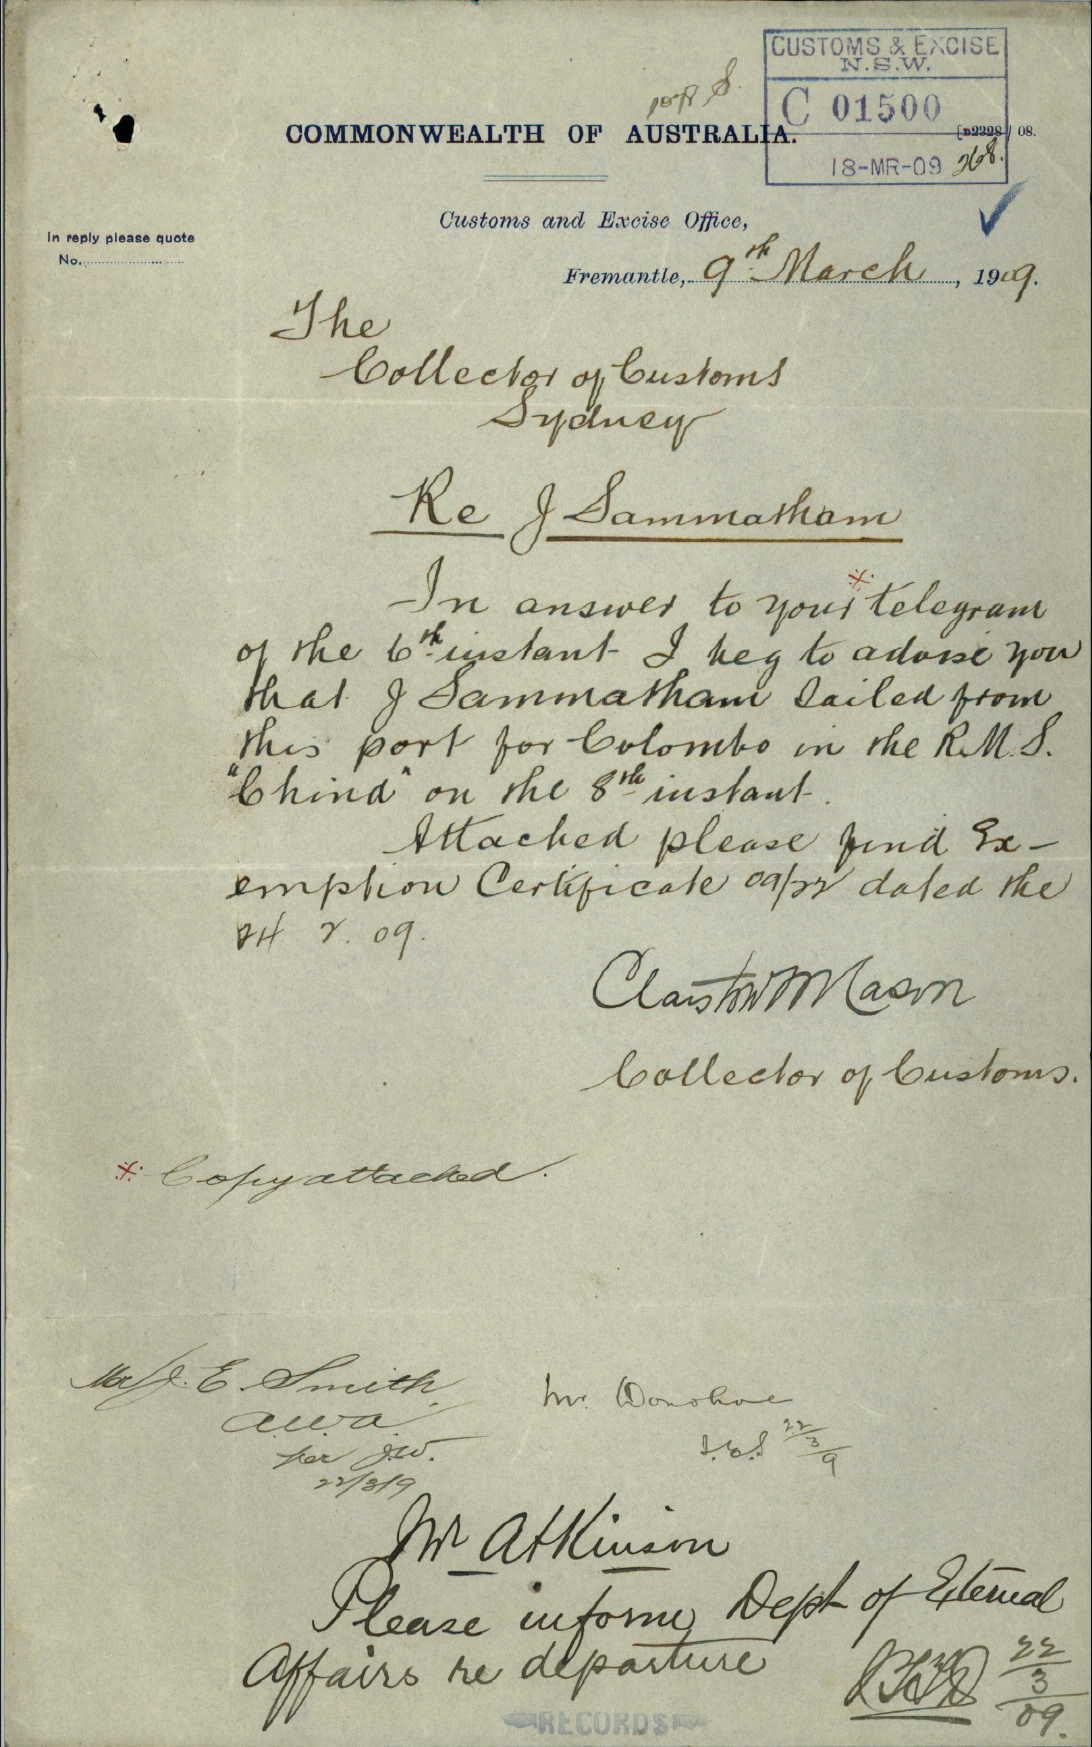 CUSTOMS & EXCISE
N.S.W.
C 01500
18-MR-09 268.
COMMONWEALTH OF AUSTRALIA.
[D2228/08.
Customs and Excise Office,
In reply please quote
No.
Fremantle, 9th March, 1909.
The
Collector of Customs
Sydney
Re J Sammatham
In answer to your * telegram
of the 6th instant I beg to advise you
that J Sammatham sailed from
this port for Colombo in the R.M.S.
"Chind" on the 8th instant.
Attached please find Ex-
emption Certificate 09/22 dated the
24 2. 09.
Mason
Collector of Customs.
* Copy attached.
Mr J. E. Smith
A.W.A.
per J.W.
22/3/9
Mr. Donohoe
J.E.S. 22/3/9
Mr Atkinson
Please inform Dept of External
Affairs re departure
22/3/09.
RECORDS